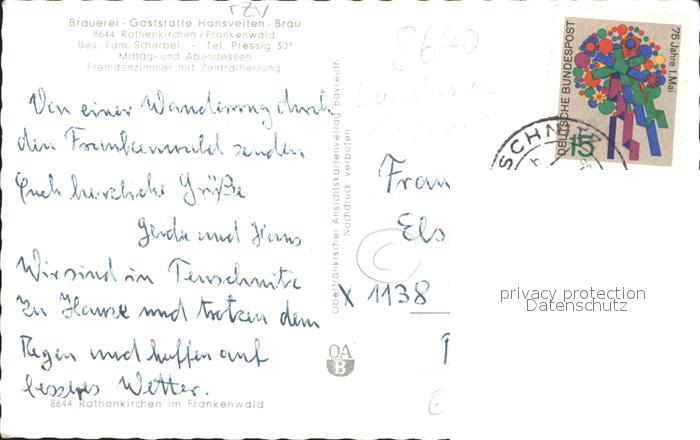 Brauerei - Gaststätte Hansveiten - Bräu
8644 Rothenkirchen / Frankenwald
Bes. Fam. Scherbel - Tel. Pressig 301
Mittag- und Abendessen
Fremdenzimmer mit Zentralheizung
Von einer Wanderung durch
den Frankenwald senden
Euch herzliche Grüße
Gerda und Hans
Wir sind in Teuschnitz
zu Hause und trotzen dem
Regen und hoffen auf
besseres Wetter.
8644 Rothenkirchen im Frankenwald
Oberfränkischer Ansichtskartenverlag Bayreuth
Nachdruck verboten
OA
B
8640
DEUTSCHE BUNDESPOST
75 Jahre 1. Mai
15
SCHN
Frau
Els
X 1138
privacy protection
Datenschutz